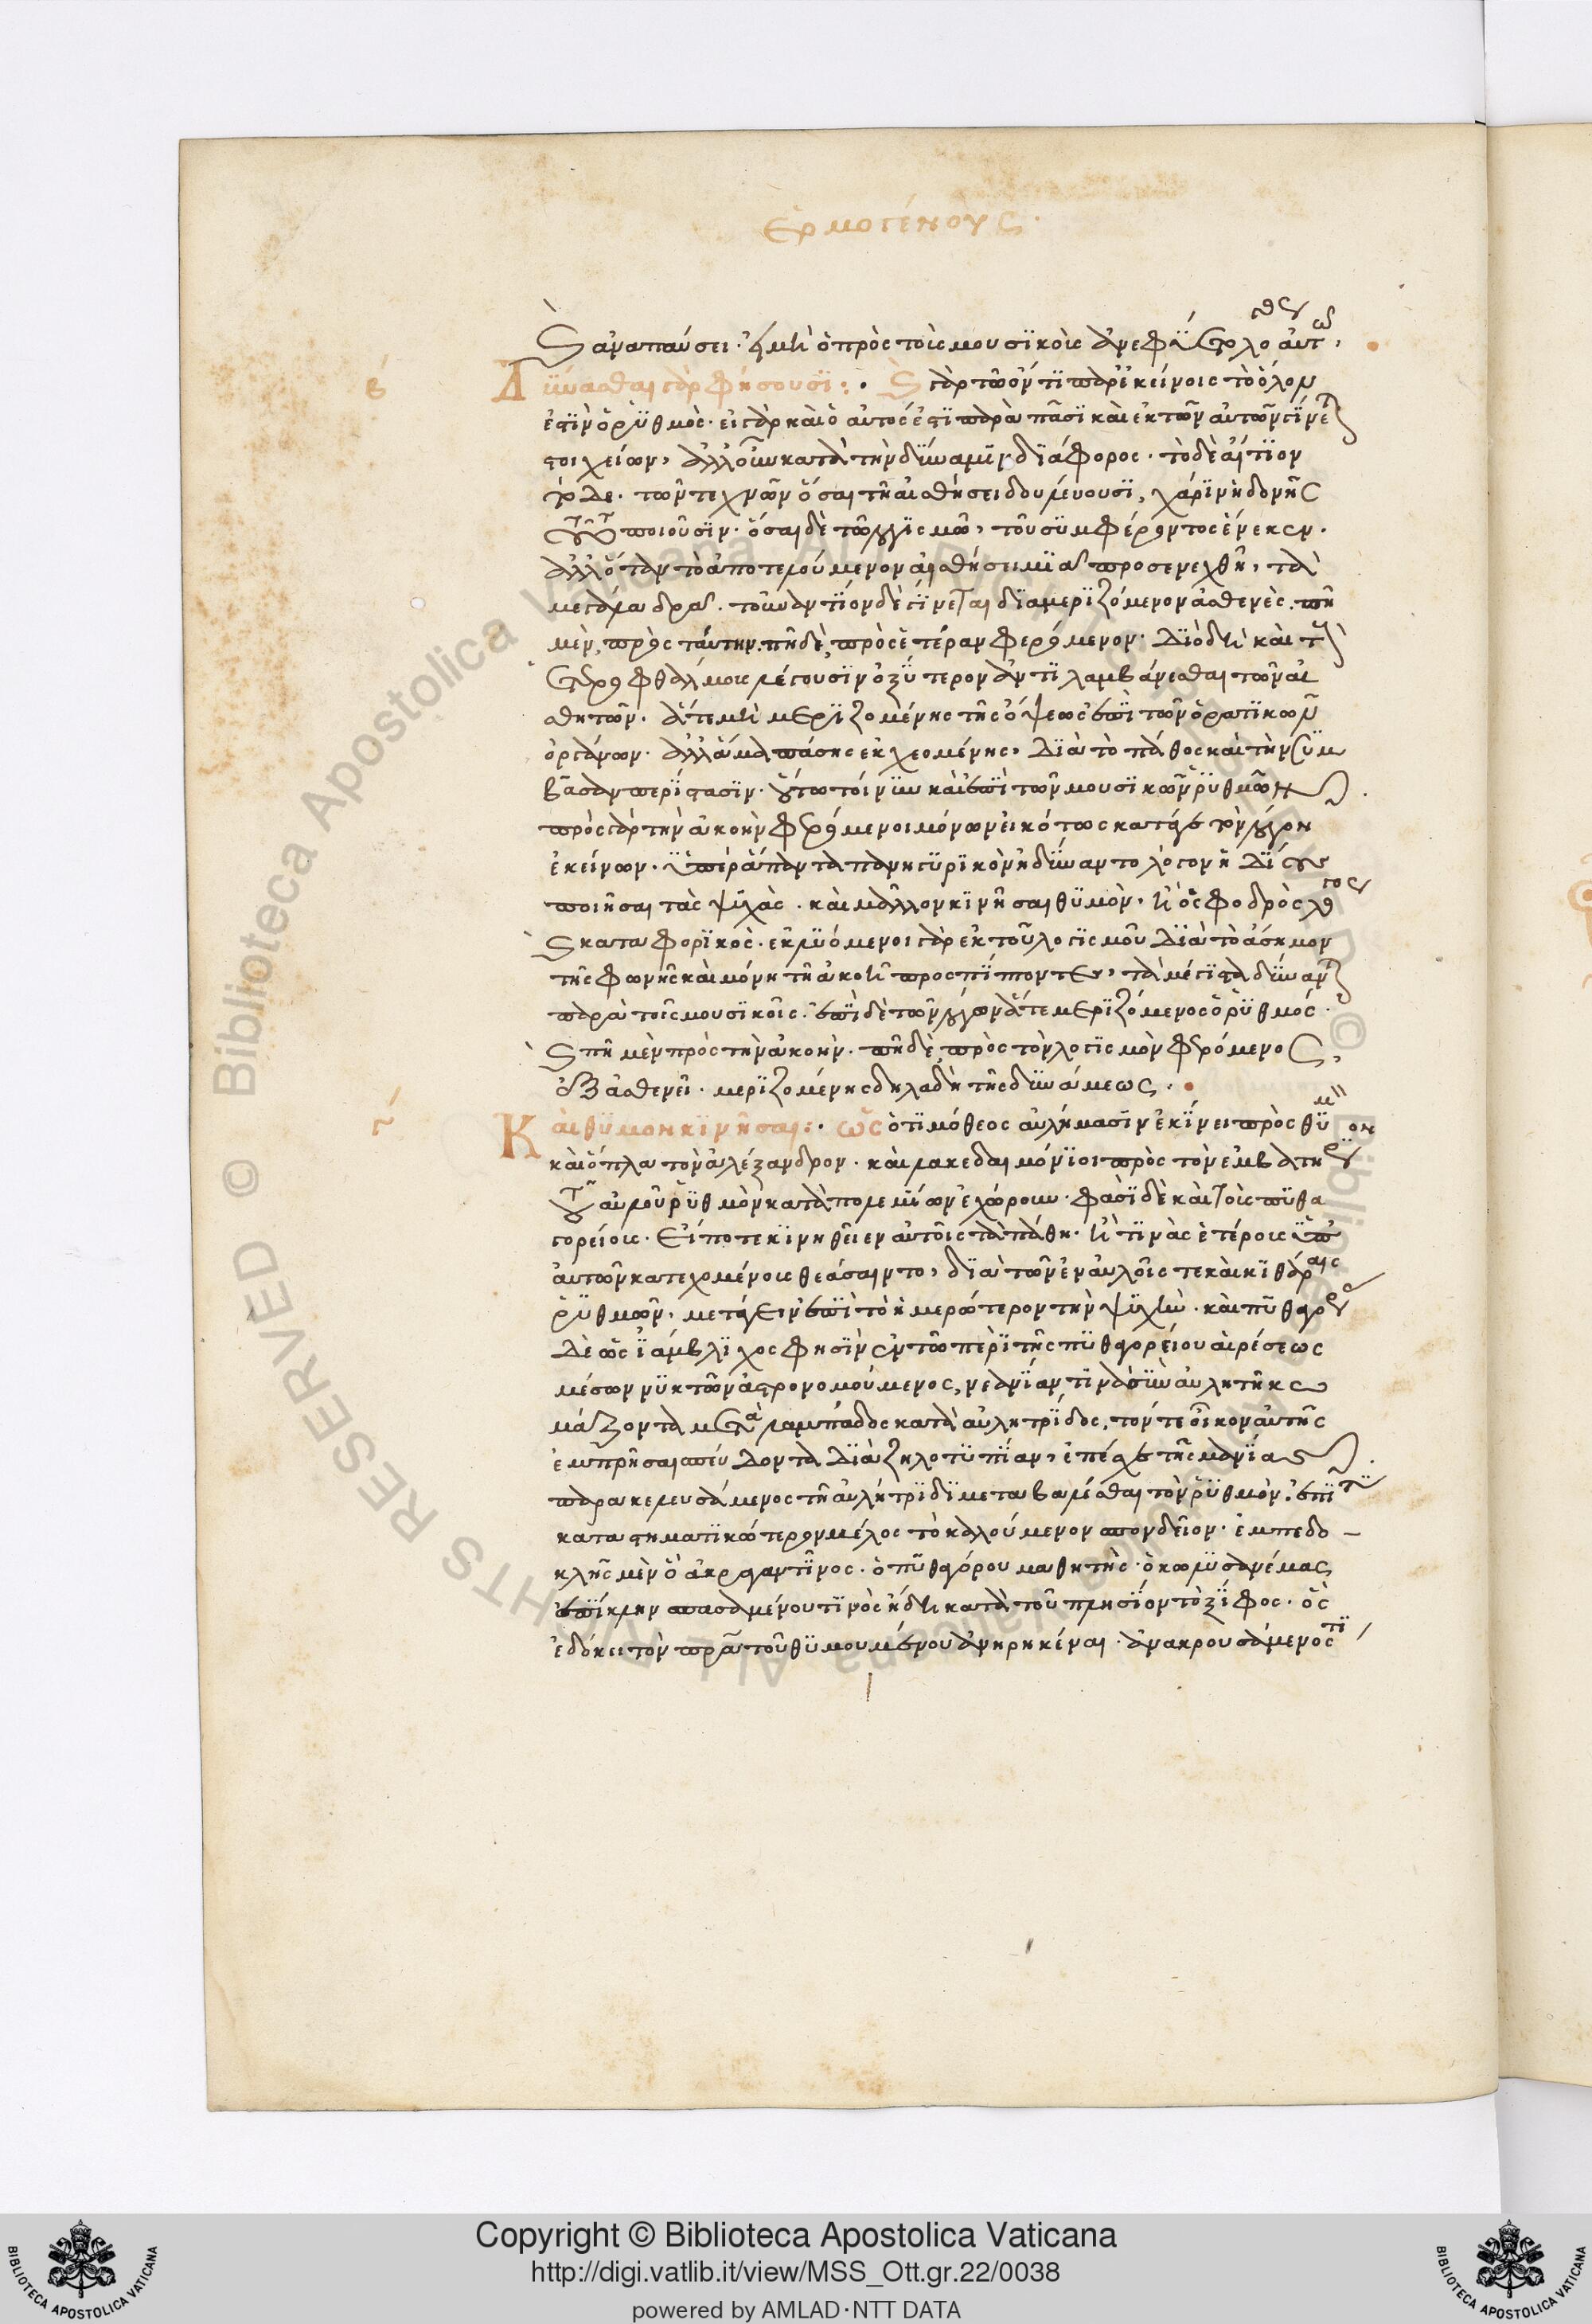 Ἑρμογένους.
καὶ ἀναπαύσει. ἐπειδὴ ὁ πρὸς τοῖς μουσικοῖς
β
Δύνασθαι γὰρ φήσουσι: καὶ γὰρ τῷ ὄντι παρ' ἐκείνοις τὸ ὅλον
ἐστὶν ὁ ῥυθμὸς. εἰ γὰρ καὶ ὁ αὐτός ἐστι παρὰ πᾶσι καὶ ἐκ τῶν αὐτῶν γίνεται
στοιχείων, ἀλλ' οὖν κατὰ τὴν δύναμιν διάφορος. τὸ δὲ αἴτιον
τόδε. τῶν τεχνῶν ὅσαι τῇ αἰσθήσει δουλεύουσι, χάριν ἡδονῆς
τοῦτο ποιοῦσιν. ὅσαι δὲ τῷ λογισμῷ, τοῦ συμφέροντος ἕνεκεν.
ἀλλ' ὅταν τὸ ἀποτελούμενον αἰσθήσει μιᾷ προσενεχθῇ, τὰ
μεγάλα δρᾷ. τοὐναντίον δὲ γίνεται διαμεριζόμενον ἀσθενὲς. πῆ
μὲν, πρὸς ταύτην. πῆ δὲ, πρὸς ἑτέραν φερόμενον. Διὸ δὴ καὶ τοὺς
ἑτεροφθάλμους λέγουσιν ὀξύτερον ἀντιλαμβάνεσθαι τῶν αἰ
σθητῶν. ἅτε μὴ μεριζομένης τῆς ὄψεως ἐπὶ τῶν ὁρατικῶν
ὀργάνων. ἀλλ' ἅμα πάσης ἐκχεομένης, Διὰ τὸ πάθος καὶ τὴν συμ
βᾶσαν περίστασιν. οὕτω τοίνυν καὶ ἐπὶ τῶν μουσικῶν ῥυθμῶν.
πρὸς γὰρ τὴν ἀκοὴν φερόμενοι μόνων εἰκότως κατάγουσι τὸν λόγον
ἐκείνων. ὑπὲρ ἅπαντα πανηγυρικὸν ἠδύναντο λόγον ἢ
ποιῆσαι τὰς ψυχὰς. καὶ μᾶλλον κινῆσαι θυμὸν, ἢ ὁ σφοδρὸς λόγος
καὶ καταφορικὸς. ἐκλυόμενοι γὰρ ἐκ τοῦ λογισμοῦ Διὰ τὸ ἄσημον
τῆς φωνῆς καὶ μόνῃ τῇ ἀκοῇ προσπίπτοντες, τὰ μέγιστα δύνανται
παρὰ τοῖς μουσικοῖς. ἐπὶ δὲ τῶν λόγων ἅτε μεριζόμενος ὁ ῥυθμός.
καὶ πῆ μὲν πρὸς τὴν ἀκοὴν. πῆ δὲ, πρὸς τὸν λογισμὸν φερόμενος,
ἐξασθενεῖ. μεριζομένης δηλαδὴ τῆς δυνάμεως.
γ
Καὶ θυμὸν κινῆσαι: ὡς ὁ τιμόθεος αὐλήμασιν ἐκίνει πρὸς θυμὸν
καὶ ὅπλα τὸν ἀλέξανδρον. καὶ λακεδαιμόνιοι πρὸς τὸν ἐμβατήριον
τοῦ αὐλοῦ ῥυθμὸν κατὰ πολεμίων ἐχώρουν. φασὶ δὲ καὶ τοῖς πυθα
γορείοις. εἴποτε κινηθείεν αὐτοῖς τὰ πάθη. ἢ τινὰς ἑτέροις ὑπ'
αὐτῶν κατεχομένοις θεάσαιντο, διὰ τῶν ἐν αὐλοῖς τε καὶ κιθάραις
ῥυθμῶν, μετάγειν ἐπὶ τὸ ἡμερώτερον τὴν ψυχὴν. καὶ πυθαγόρας
Δὲ ὡς ἰάμβλιχος φησὶν ἐν τῷ περὶ τῆς πυθαγορείου αἱρέσεως
μέσων νυκτῶν ἀστρονομούμενος, νεανίαν τινὰ σὺν αὐλητῇ κω
μάζοντα μετὰ λαμπάδος κατὰ αὐλητρίδος, τόν τε οἶκον αὐτῆς
ἐμπρῆσαι σπεύδοντα Διὰ ζηλοτυπίαν, ἐπέσχε τῆς μανίας.
παρακελευσάμενος τῇ αὐλητρίδι μεταβαλέσθαι τὸν ῥυθμὸν. ἐπί τι
καταστηματικώτερον μέλος τὸ καλούμενον σπονδεῖον. ἐμπεδο-
κλῆς μὲν ὁ ἀκραγαντῖνος. ὁ πυθαγόρου μαθητὴς. ὁρκωμυσανέμας
ἐπικλην σπασαμένου τινὸς ἤδη κατὰ τοῦ πλησίον τὸ ξίφος. ὃς
ἐδόκει τὸν πρᾶ τοῦ θυμουμένου ἀνῃρηκέναι. ἀνακρουσάμενός τι
Copyright © Biblioteca Apostolica Vaticana
http://digi.vatlib.it/view/MSS_Ott.gr.22/0038
powered by AMLAD·NTT DATA